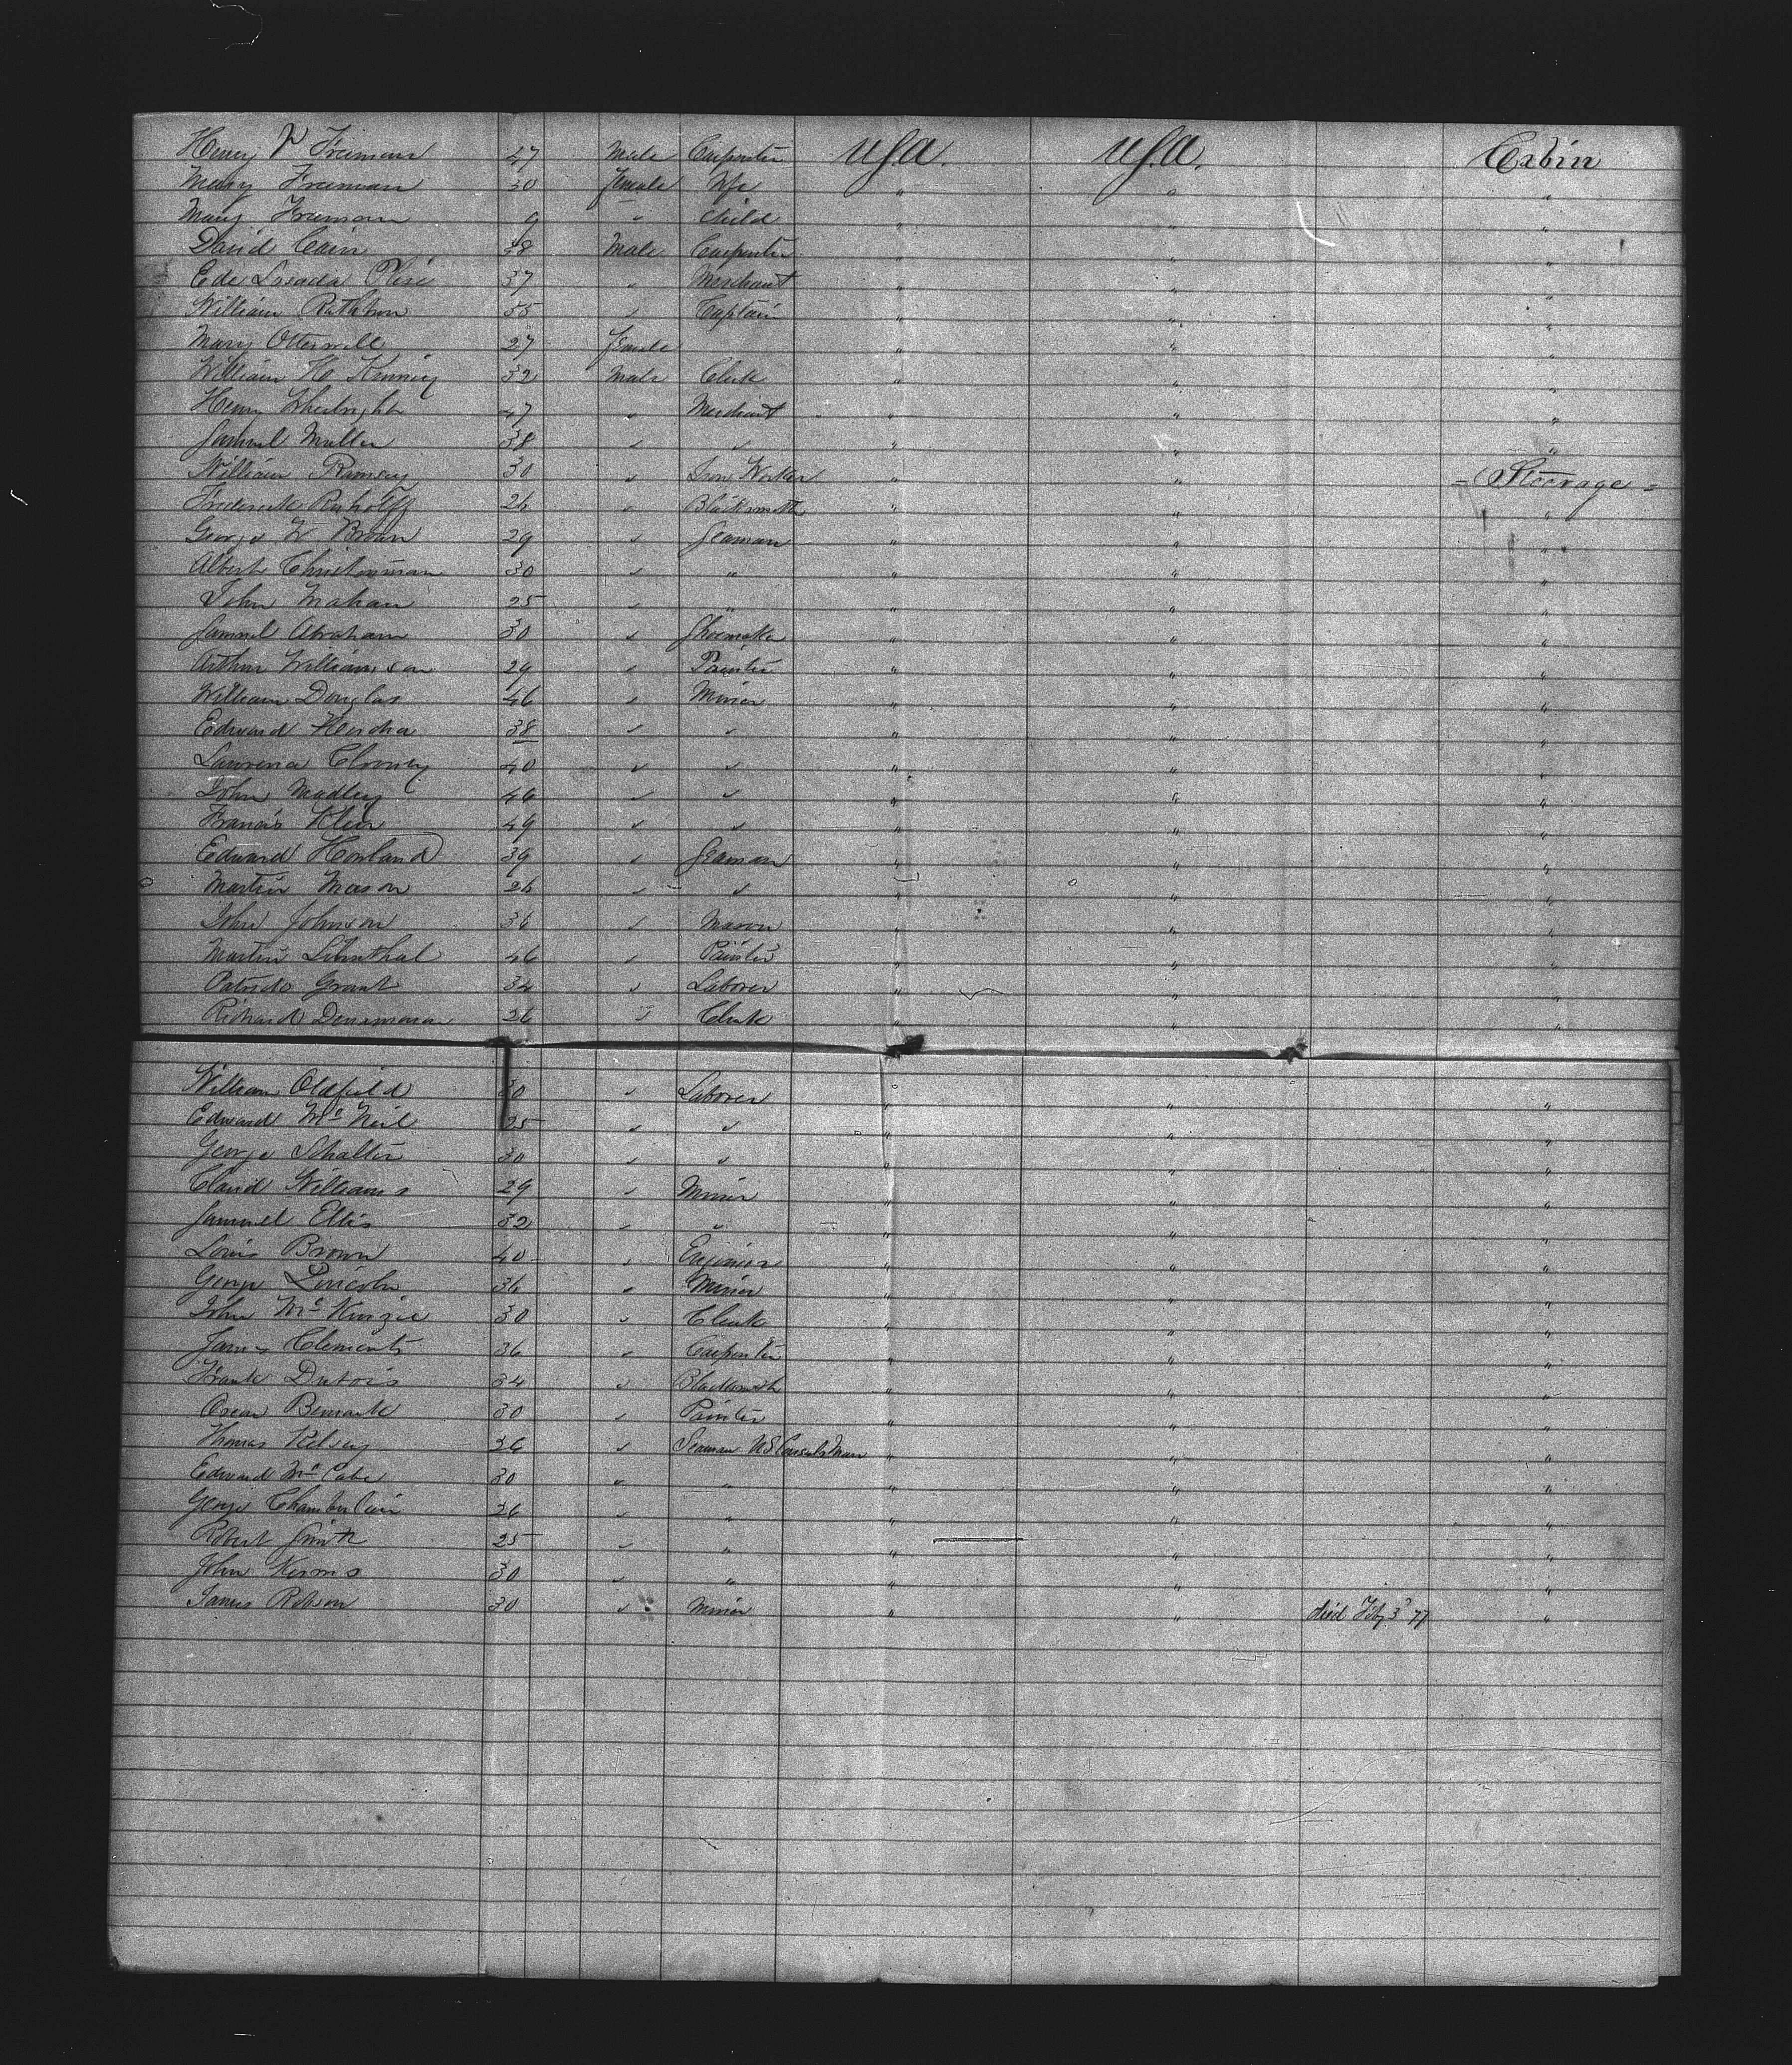 Henry P Freeman 47 Male Carpenter USA. USA. Cabin
Mary Freeman 30 female Wife " " "
Mary Freeman 9 " Child " " "
David Cain 48 Male Carpenter " " "
Ede Losada 37 " Merchant " " "
William Rathbon 55 " Captain " " "
Mary Otterwell 27 female " " "
William H 32 Male Clerk " " "
Henry 47 " Merchant " " "
Samuel Muller 38 " " " " "
William Ramsey 30 " Iron Worker " " - Steerage -
Frederick 26 " Blacksmith " " "
George W Brown 29 " Seaman " " "
Albert Christenman 30 " " " " "
John Mahan 25 " " " " "
Samuel Abraham 30 " Shoemaker " " "
Arthur Williamson 29 " Painter " " "
William Douglas 46 " Miner " " "
Edward 38 " " " " "
Lawrence 40 " " " " "
John Madley 46 " " " " "
Francis Klein 49 " " " " "
Edward Howland 39 " Seaman " " "
Martin Mason 26 " " " " "
John Johnson 36 " Mason " " "
Martin Lilinthal 46 " Painter " " "
Patrick Grant 34 " Laborer " " "
Richard 26 " Clerk " " "
William Oldfield 30 " Laborer " " "
Edward McNeil 25 " " " " "
George Schalter 30 " " " " "
Claud Williams 29 " Miner " " "
Samuel Ellis 32 " " " " "
Louis Brown 40 " Engineer " " "
George Lincoln 36 " Miner " " "
John McKinzie 30 " Clerk " " "
James Clements 36 " Carpenter " " "
Frank Dubois 34 " Blacksmith " " "
Oscar 30 " Painter " " "
Thomas Kelsey 26 " Seaman US Consuls Man " " "
Edward McCabe 30 " " " " "
George Chamberlain 26 " " " " "
Robert Smith 25 " " " " "
John 30 " " " " "
James Robson 30 " Miner " " died Feby 3d 77 "